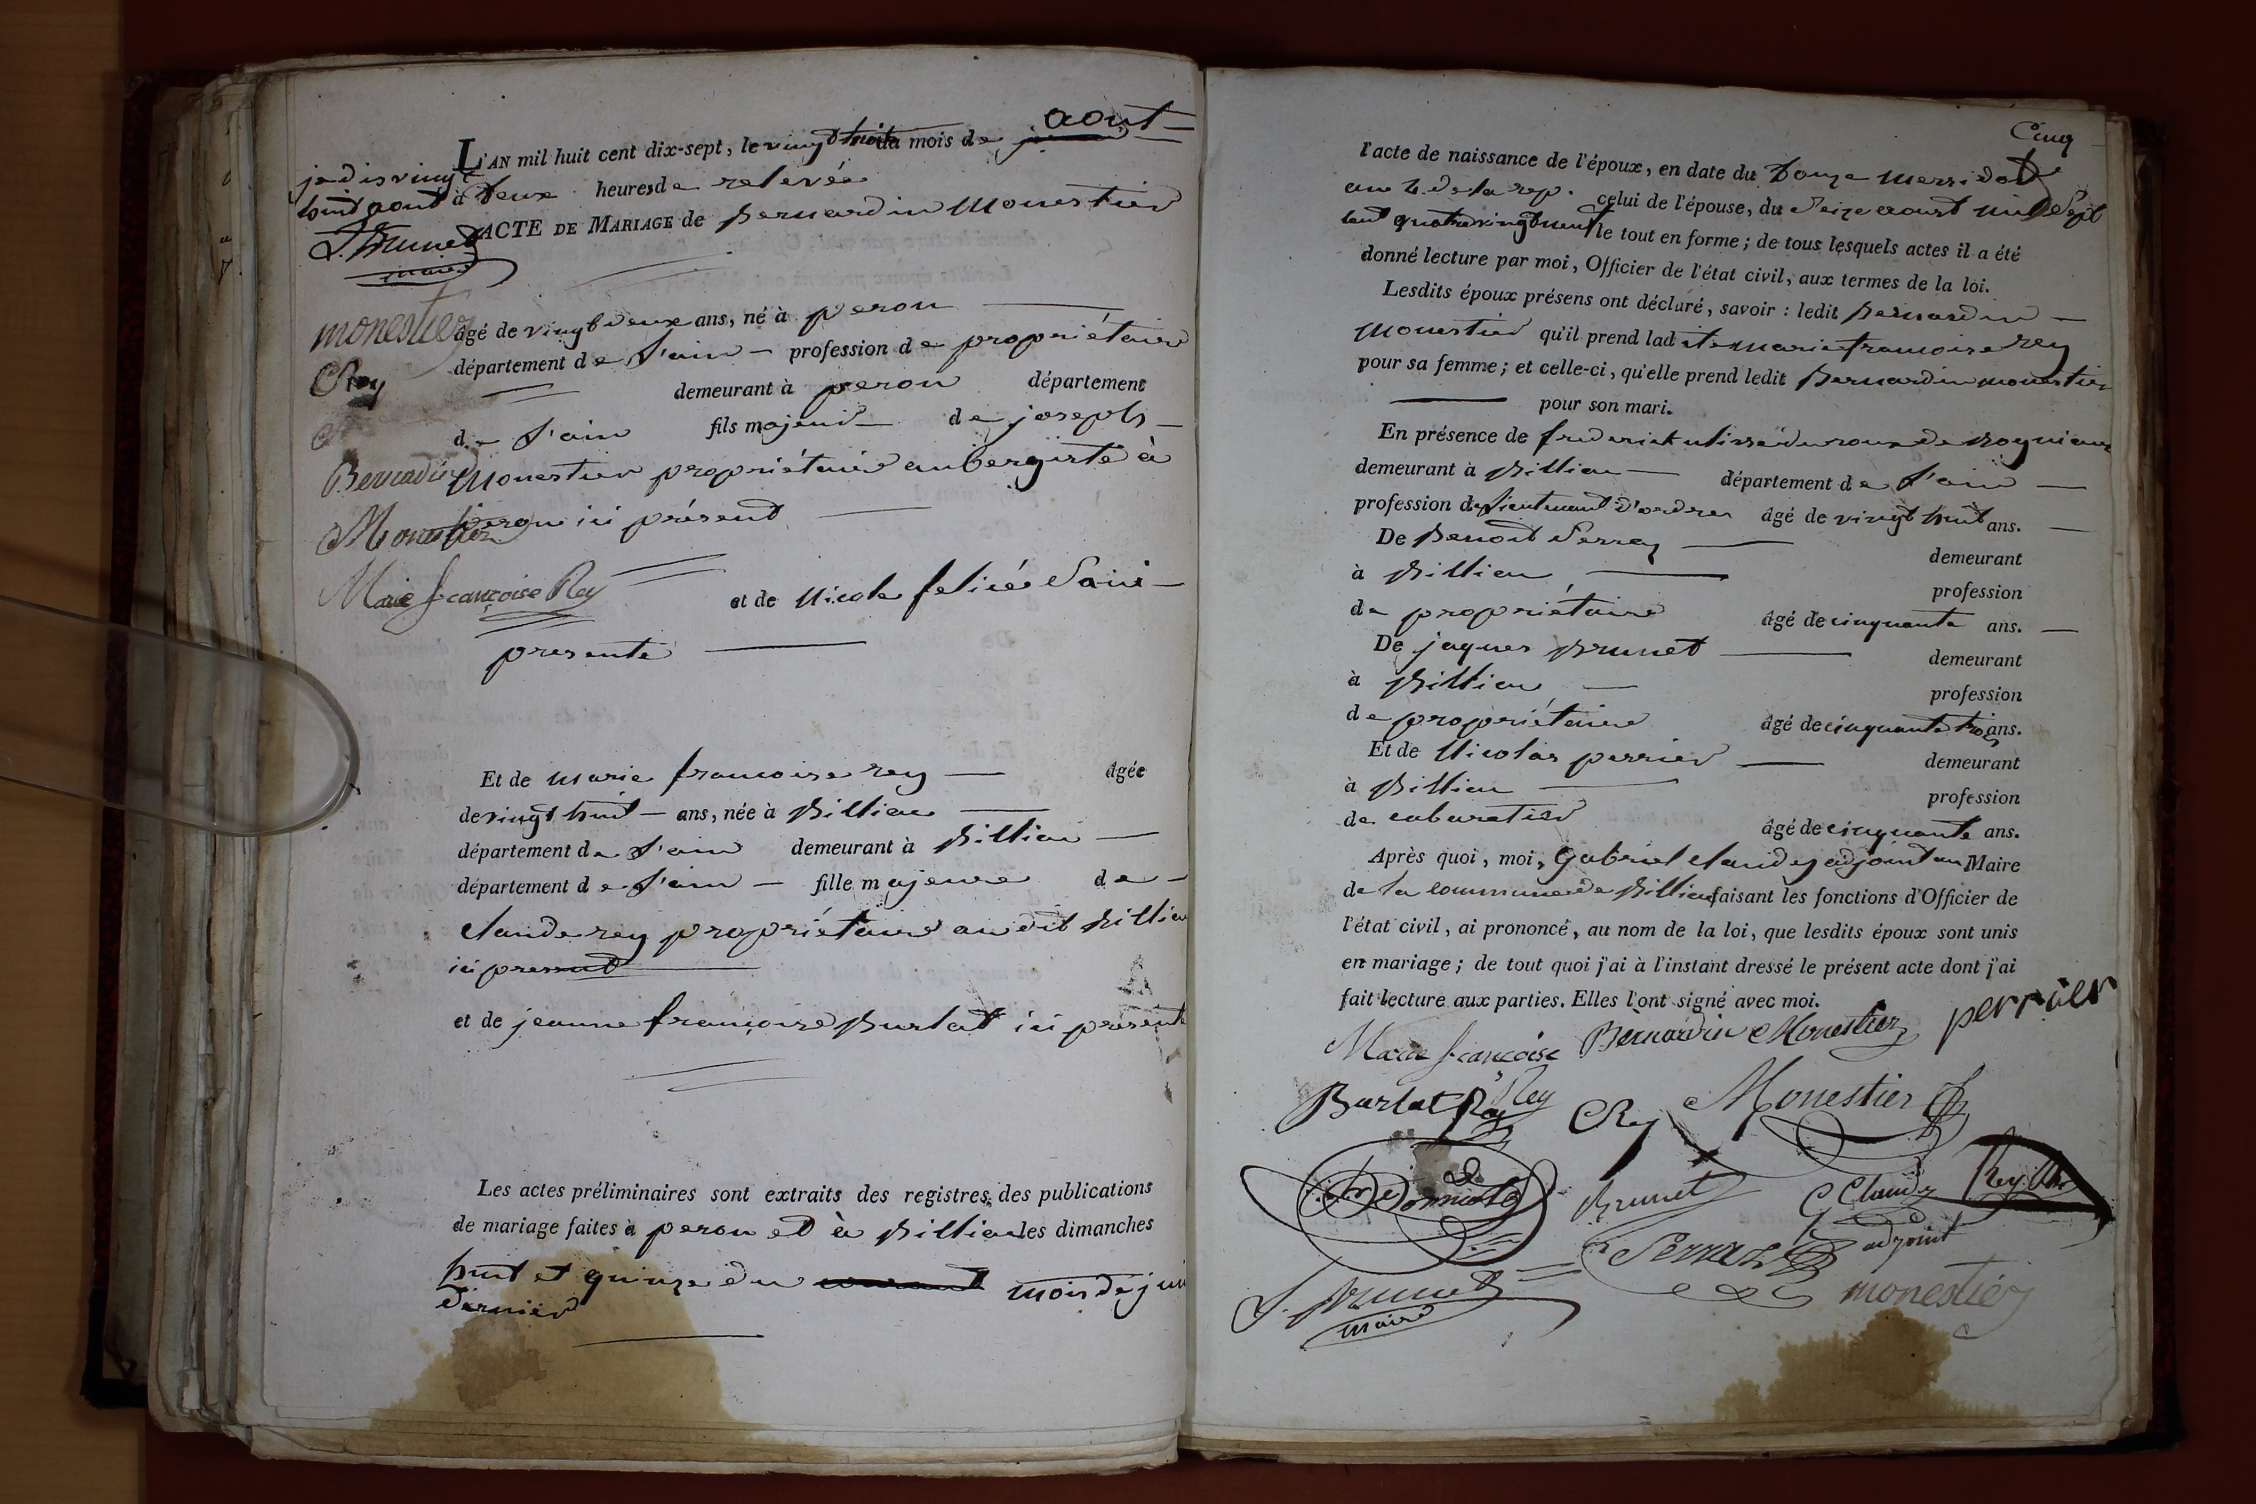 L'AN mil huit cent dix-sept, le vingt huit du mois de aout
je dis vingt
huit aout
J. Brunet
maire
à deux heures de relevée
ACTE DE MARIAGE de Bernardin Monestier
monestier
âgé de vingt deux ans, né à peron
département de l'ain profession de propriétaire
CRey
demeurant à peron département
de l'ain fils majeur de joseph
Bernardin
Monestier propriétaire aubergiste à
Monestier
peron ici présent
Marie françoise Rey
et de Nicole felicé
presente
Et de marie francoise rey âgée
de vingt huit ans, née à Billiau
département de l'ain demeurant à Billiau
département de l'ain fille majeure de
claude rey propriétaire au dit Billiau
ici present
et de jeanne françoise Burlat ici présente
Les actes préliminaires sont extraits des registres des publications
de mariage faites à peron et à Billiau les dimanches
huit et quinze du courant mois de juin
dernier
Cinq
l'acte de naissance de l'époux, en date du douze messidor
an 4 de la rep. celui de l'épouse, du seize aoust mil sept
cent quatrevingt neuf le tout en forme; de tous lesquels actes il a été
donné lecture par moi, Officier de l'état civil, aux termes de la loi.
Lesdits époux présens ont déclaré, savoir : ledit Bernardin
Monestier qu'il prend ladite marie francoise rey
pour sa femme; et celle-ci, qu'elle prend ledit Bernardin monestier
pour son mari.
En présence de frederick ulisse duroux de
demeurant à Billiau département de l'ain
profession de lieutenant d'ordre âgé de vingt huit ans.
De Benoit Serraz demeurant
à Billiau profession
de propriétaire âgé de cinquante ans.
De jaques Brunet demeurant
à Billiau profession
de propriétaire âgé de cinquante trois ans.
Et de Nicolas perrier demeurant
à Billiau profession
de cabaretier âgé de cinquante ans.
Après quoi, moi, Gabriel claudy adjoint au Maire
de la commune de Billiau faisant les fonctions d'Officier de
l'état civil, ai prononcé, au nom de la loi, que lesdits époux sont unis
en mariage; de tout quoi j'ai à l'instant dressé le présent acte dont j'ai
fait lecture aux parties. Elles l'ont signé avec moi.
Marie françoise Bernardin Monestier perrier
Rey
Burlat Rey CRey Monestier
Brunet G Claudy Rey
adjoint
Serraz
J. Brunet monestier
maire